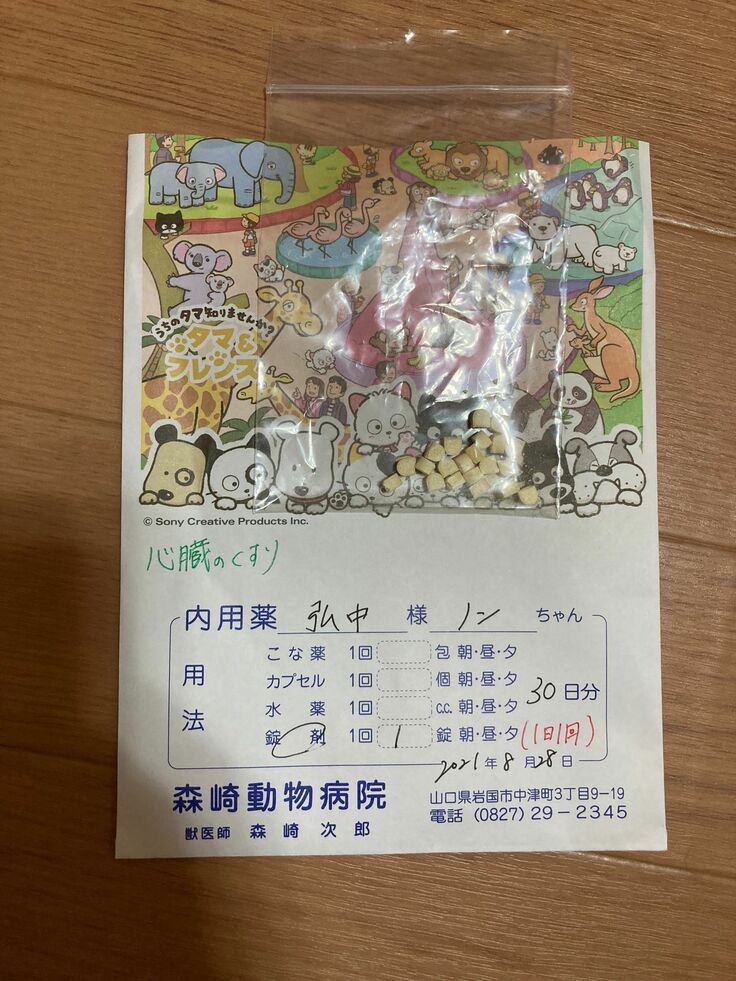 うちのタマ知りませんか?
タマ&
フレンズ
© Sony Creative Products Inc.
心臓のくすり
内用薬 弘中 様 ノン ちゃん
用法
こな薬 1回 包 朝・昼・夕
カプセル 1回 個 朝・昼・夕 30日分
水薬 1回 c.c. 朝・昼・夕
錠剤 1回 1 錠 朝・昼・夕 (1日1回)
2021年8月28日
森崎動物病院 山口県岩国市中津町3丁目9-19
獣医師 森崎次郎 電話 (0827) 29-2345